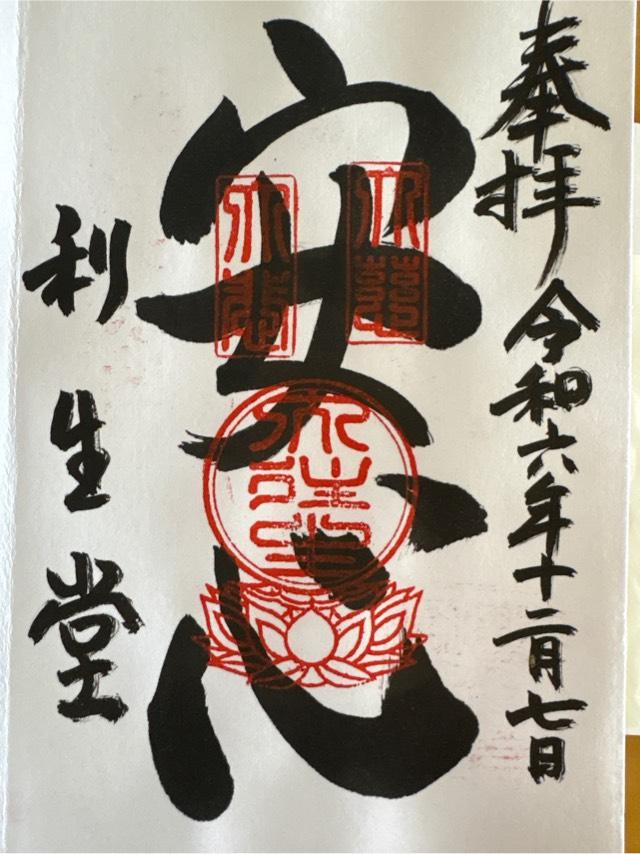 奉拝 令和六年十二月七日
安心
利生堂